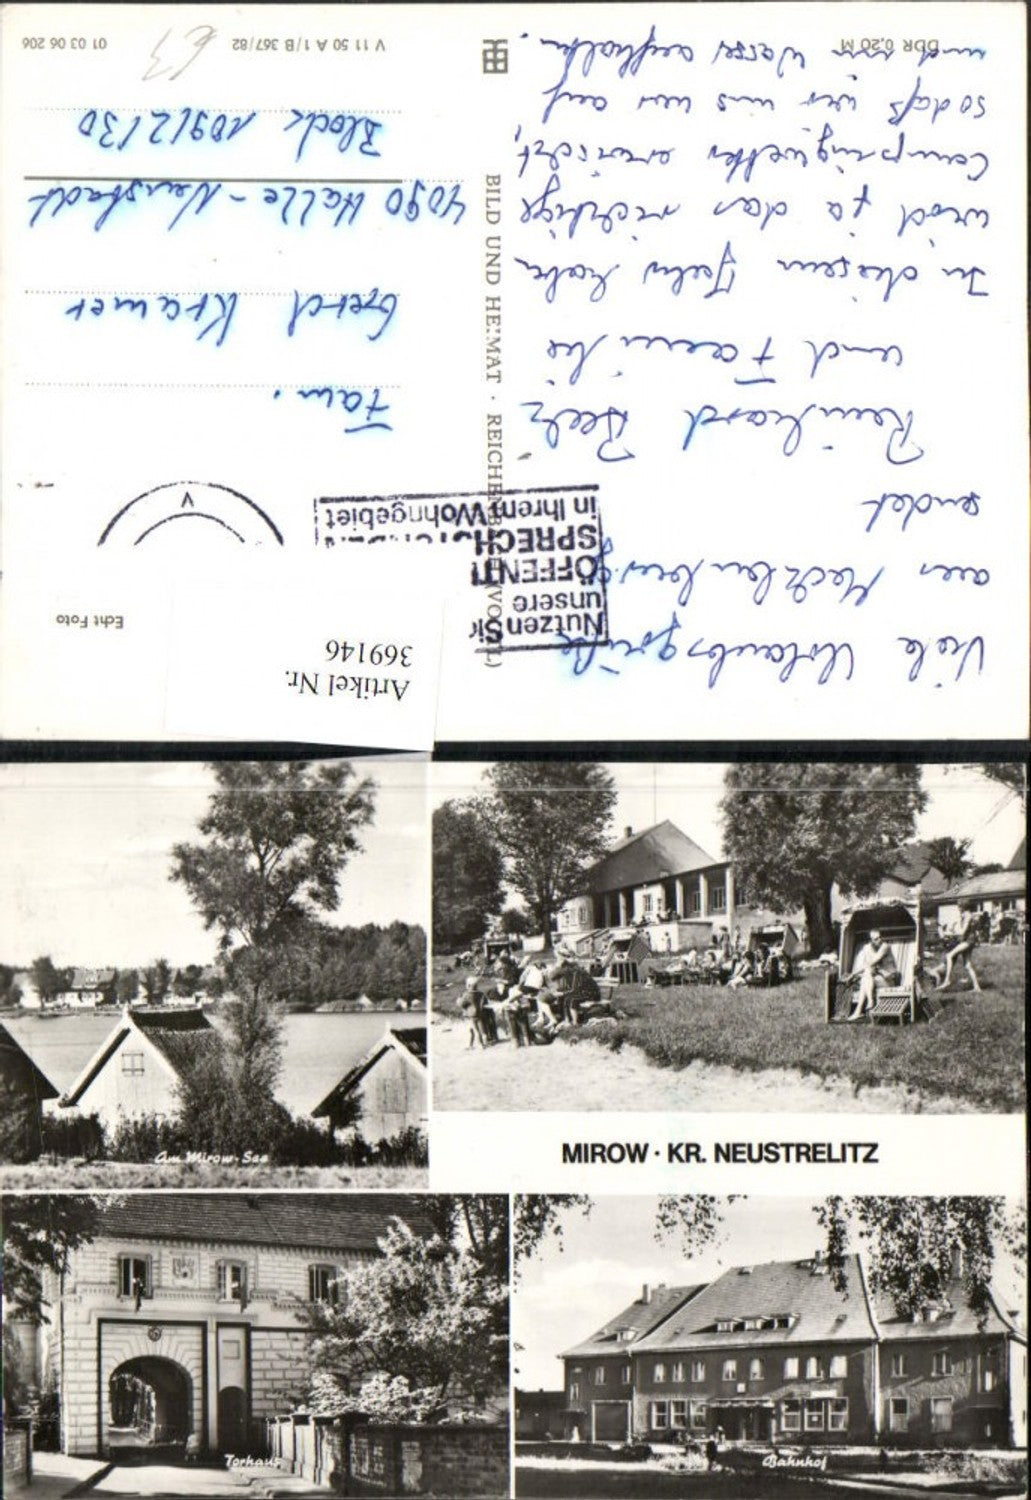 Viele Urlaubsgrüße
aus Mecklenburg
sendet
Reinhard
und Familie
In diesem Jahr haben
wird ja das richtige
Campingwetter erwischt,
sodaß wir uns nur auf
und im Wasser aufhalten.
DDR 0,20 M
BILD UND HEIMAT · REICHENBACH (VOGTL)
Nutzen Sie
unsere
ÖFFENTL
SPRECH
in Ihrem Wohngebiet
Echt Foto
Artikel Nr.
369146
Fam.
Gerd Kramer
4090 Halle-Neustadt
Block 109/2/30
V 11 50 A 1/B 367/82
01 03 06 206
€3
Am Mirow-See
MIROW · KR. NEUSTRELITZ
Torhaus
Bahnhof